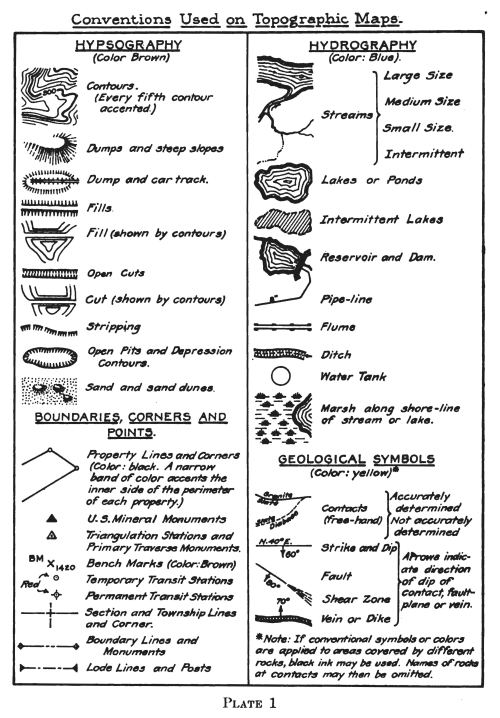 Conventions Used on Topographic Maps.
HYPSOGRAPHY
(Color Brown)
500
Contours.
(Every fifth contour
accented.)
Dumps and steep slopes
Dump and car track.
Fills.
Fill (shown by contours)
Open Cuts
Cut (shown by contours)
Stripping
Open Pits and Depression
Contours.
Sand and sand dunes.
BOUNDARIES, CORNERS AND
POINTS.
Property Lines and Corners
(Color: black. A narrow
band of color accents the
inner side of the perimeter
of each property.)
U.S. Mineral Monuments
Triangulation Stations and
Primary Traverse Monuments.
BM X 1420 Bench Marks (Color: Brown)
Red Temporary Transit Stations
Permanent Transit Stations
Section and Township Lines
and Corner.
Boundary Lines and
Monuments
Lode Lines and Posts
HYDROGRAPHY
(Color: Blue).
Streams
Large Size
Medium Size
Small Size.
Intermittent
Lakes or Ponds
Intermittent Lakes
Reservoir and Dam.
8" Pipe-line
Flume
Ditch
Water Tank
Marsh along shore-line
of stream or lake.
GEOLOGICAL SYMBOLS
(Color: yellow)*
Granite
Slate
Slate
Diabase
Contacts
(free-hand)
Accurately
determined
Not accurately
determined
N.40°E.
60°
Strike and Dip
80°
Fault
Shear Zone
70°
Vein or Dike
Arrows indic-
ate direction
of dip of
contact, fault-
plane or vein.
*Note: If conventional symbols or colors
are applied to areas covered by different
rocks, black ink may be used. Names of rocks
at contacts may then be omitted.
PLATE 1